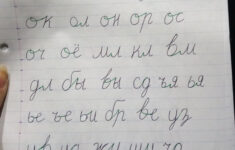 ок ол он ор ос
оч оё мл кл вм
дл бы вы сд ъя ья
ье ъе ьи бр ве уз